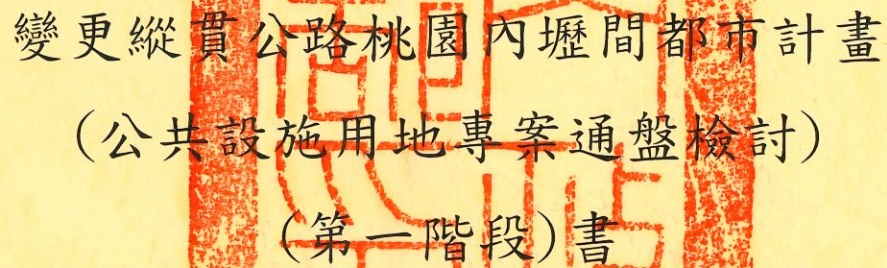 變更縱貫公路桃園內壢間都市計畫
(公共設施用地專案通盤檢討)
(第一階段)書